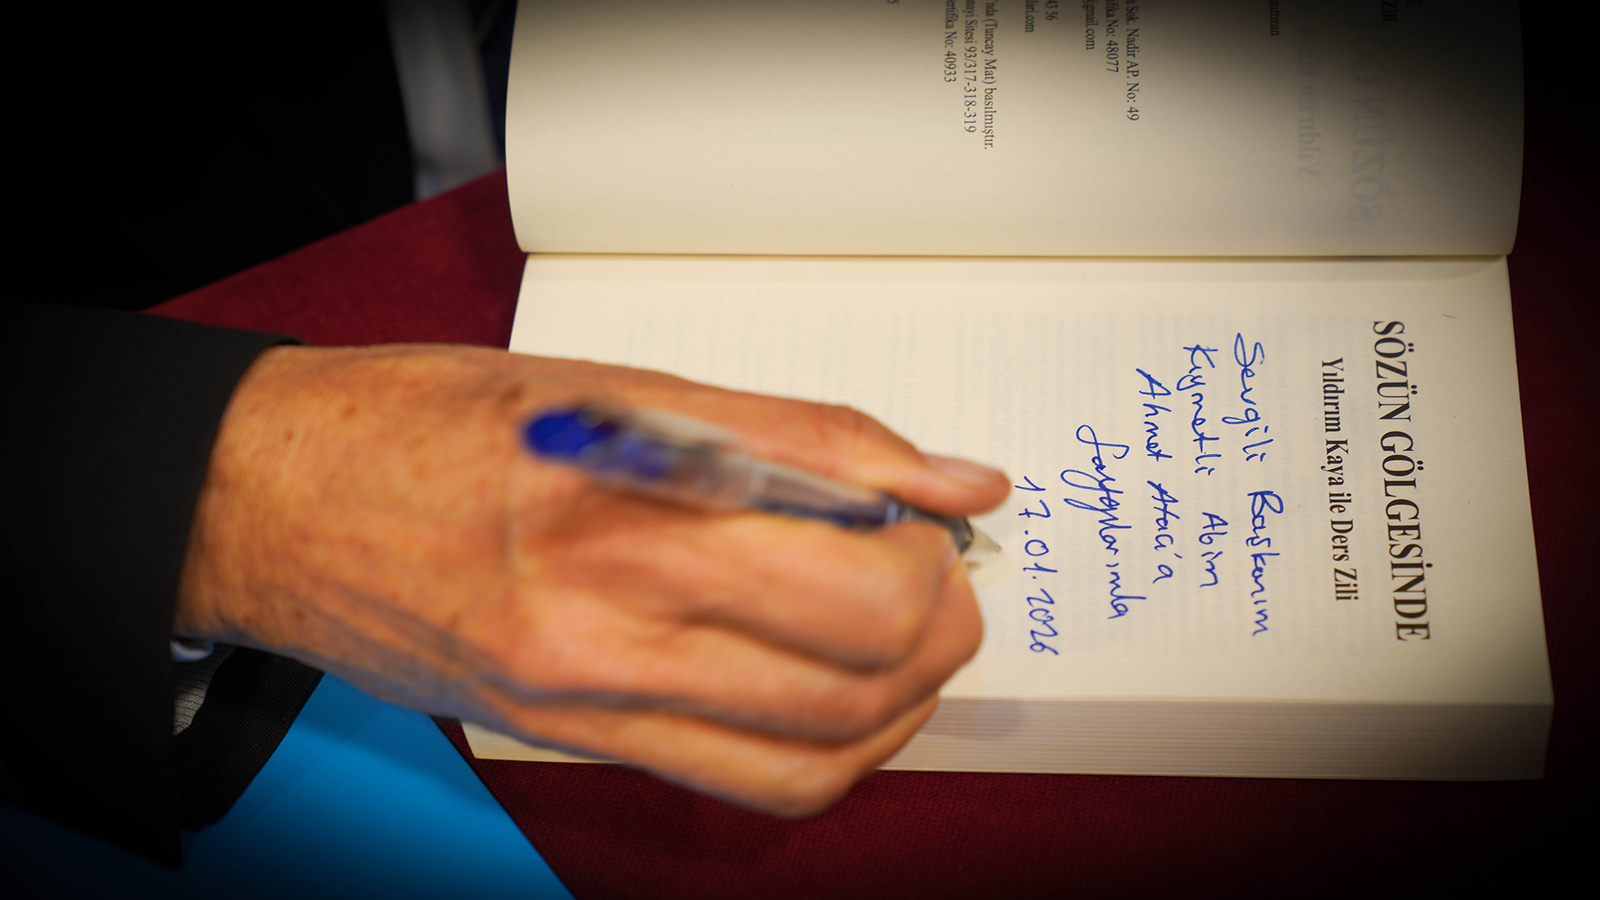 Zili
ınıttıran
n Sok. Nadir AP. No: 49
fika No: 48077
@gmail.com
43 56
lari.com
'nda (Tuncay Mat) basılmıştır.
nayi Sitesi 93/317-318-319
ertifika No: 40933
SÖZÜN GÖLGESİNDE
Yıldırım Kaya ile Ders Zili
Sevgili Başkanım
Kıymetli Abim
Ahmet Atac'a
Saygılarımla
17.01.2026